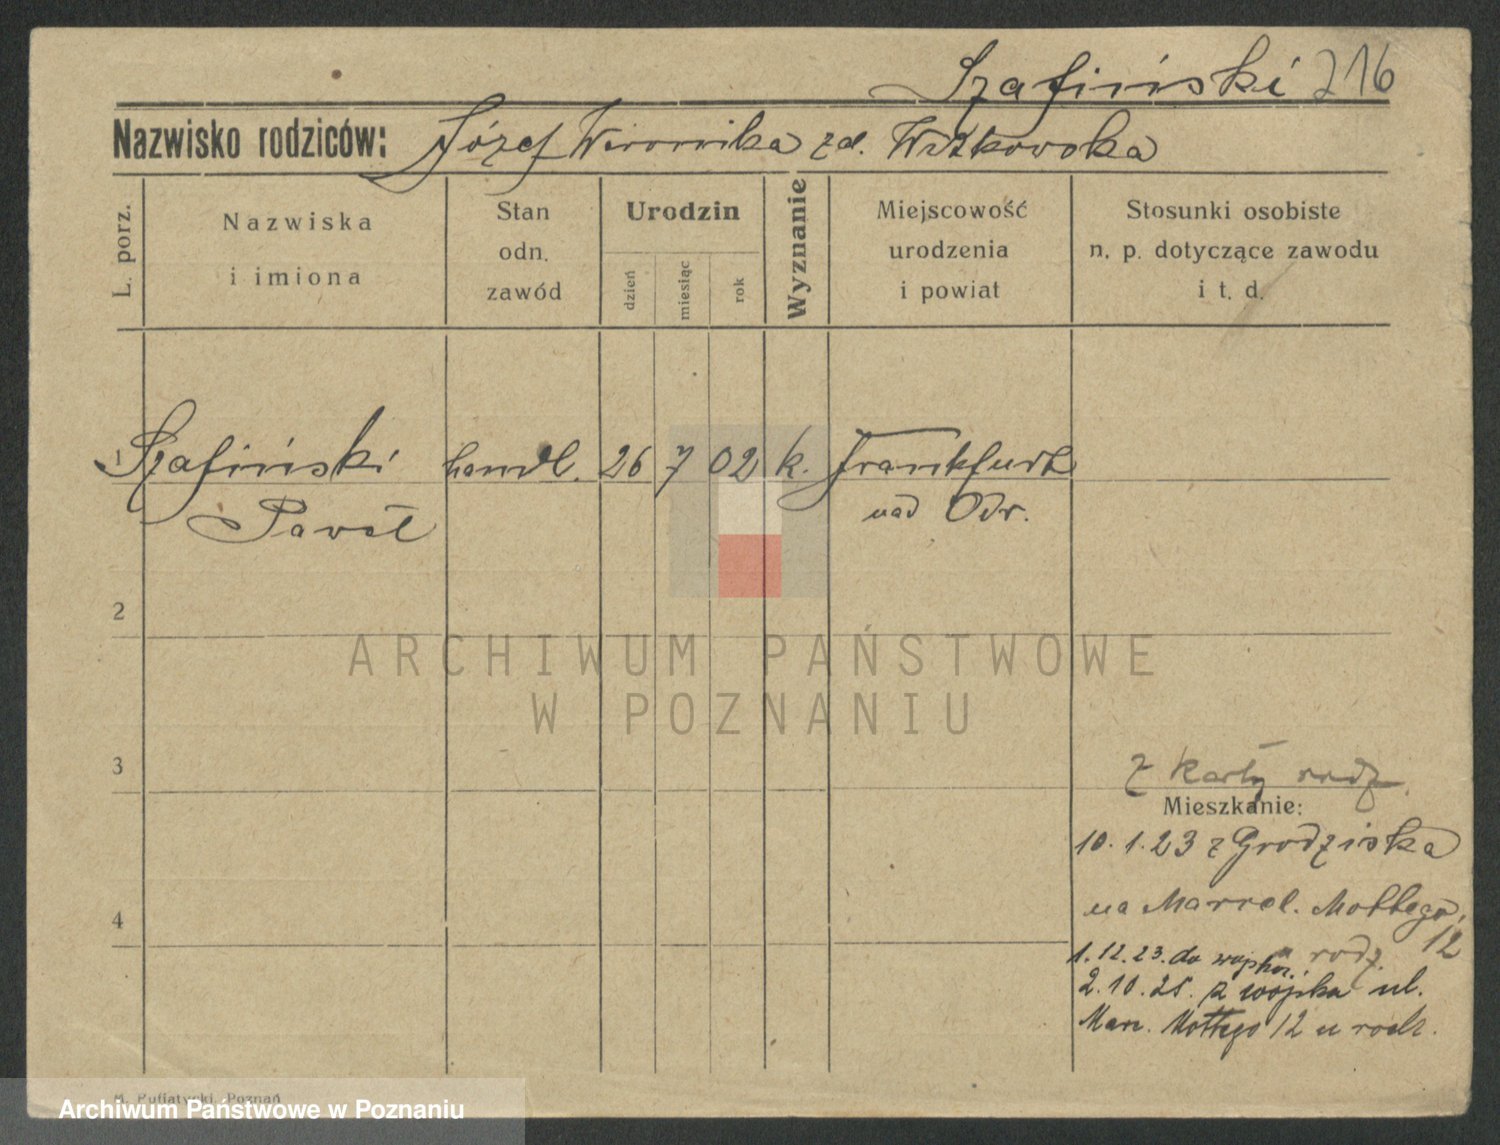 Szafiński 216
Nazwisko rodziców: Józef Weronika zd. Witkowska
L. porz.
Nazwiska
i imiona
Stan
odn.
zawód
Urodzin
dzień
miesiąc
rok
Wyznanie
Miejscowość
urodzenia
i powiat
Stosunki osobiste
n. p. dotyczące zawodu
i t. d.
1 Szafiński handl. 26 7 02 k. Frankfurt
Paweł nad Odr.
2
ARCHIWUM PAŃSTWOWE
W POZNANIU
3
z karty rodz.
Mieszkanie:
10.1.23 z Grodziska
na Marcel. Mottego,
12
4
u rodz.
1.12.23. do wojska.
2.10.25. z wojska ul.
Marc. Mottego 12 u rodz.
M. Putiatycki, Poznań
Archiwum Państwowe w Poznaniu